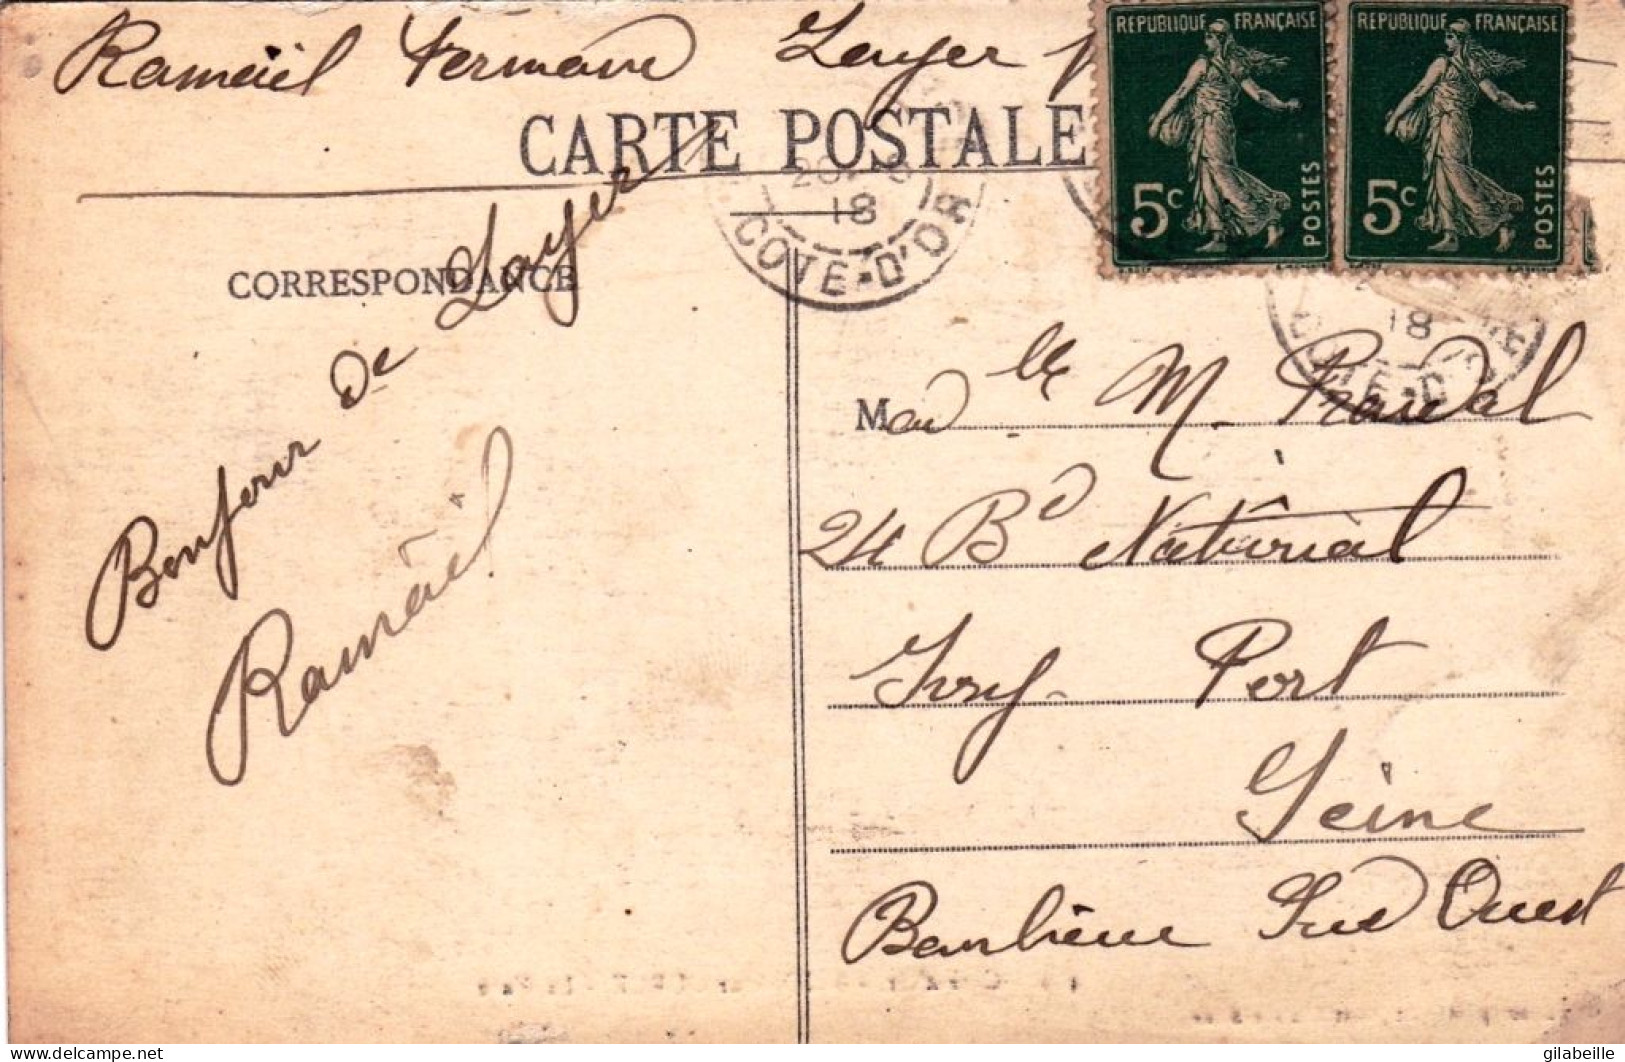 Rameail Fermane Layer
CARTE POSTALE
REPUBLIQUE FRANÇAISE
5c POSTES
REPUBLIQUE FRANÇAISE
5c POSTES
18
COTE-D'OR
18
COTE-D'OR
CORRESPONDANCE
Bonjour de Layer
Rameail
Madlle M.
24 Bd National
Ivry-Port
Seine
Banlieue Sud Ouest
delcampe.net
gilabeille